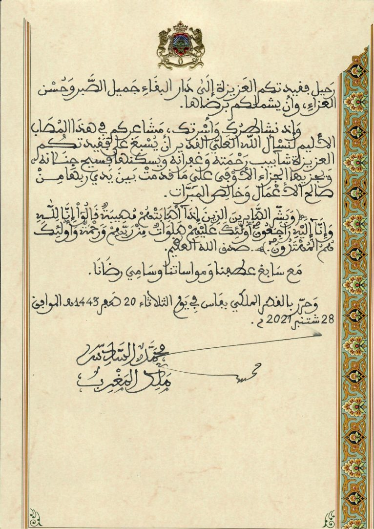 رحيل فقيدتكم العزيزة إلى دار البقاء جميل الصبر وحسن
العزاء، وأن يشملكم برضاها.
وإذ نشاطرك وأسرتك، مشاعركم في هذا المصاب
الأليم لنسأل الله العلي القدير أن يسبغ على فقيدتكم
العزيزة شآبيب رحمته وغفرانه ويسكنها فسيح جنانه،
ويجزيها الجزاء الأوفى على ما قدمت بين يدي ربها من
صالح الأعمال وخالص المبرات.
"وبشر الصابرين الذين إذا أصابتهم مصيبة قالوا إنا لله
وإنا إليه راجعون أولئك عليهم صلوات من ربهم ورحمة وأولئك
هم المهتدون". صدق الله العظيم.
مع سابغ عطفنا ومواساتنا وسامي رضانا.
وحرر بالقصر الملكي بفاس في يوم الثلاثاء 20 صفر 1443هـ الموافق
28 شتنبر 2021م.
محمد السادس
ملك المغرب